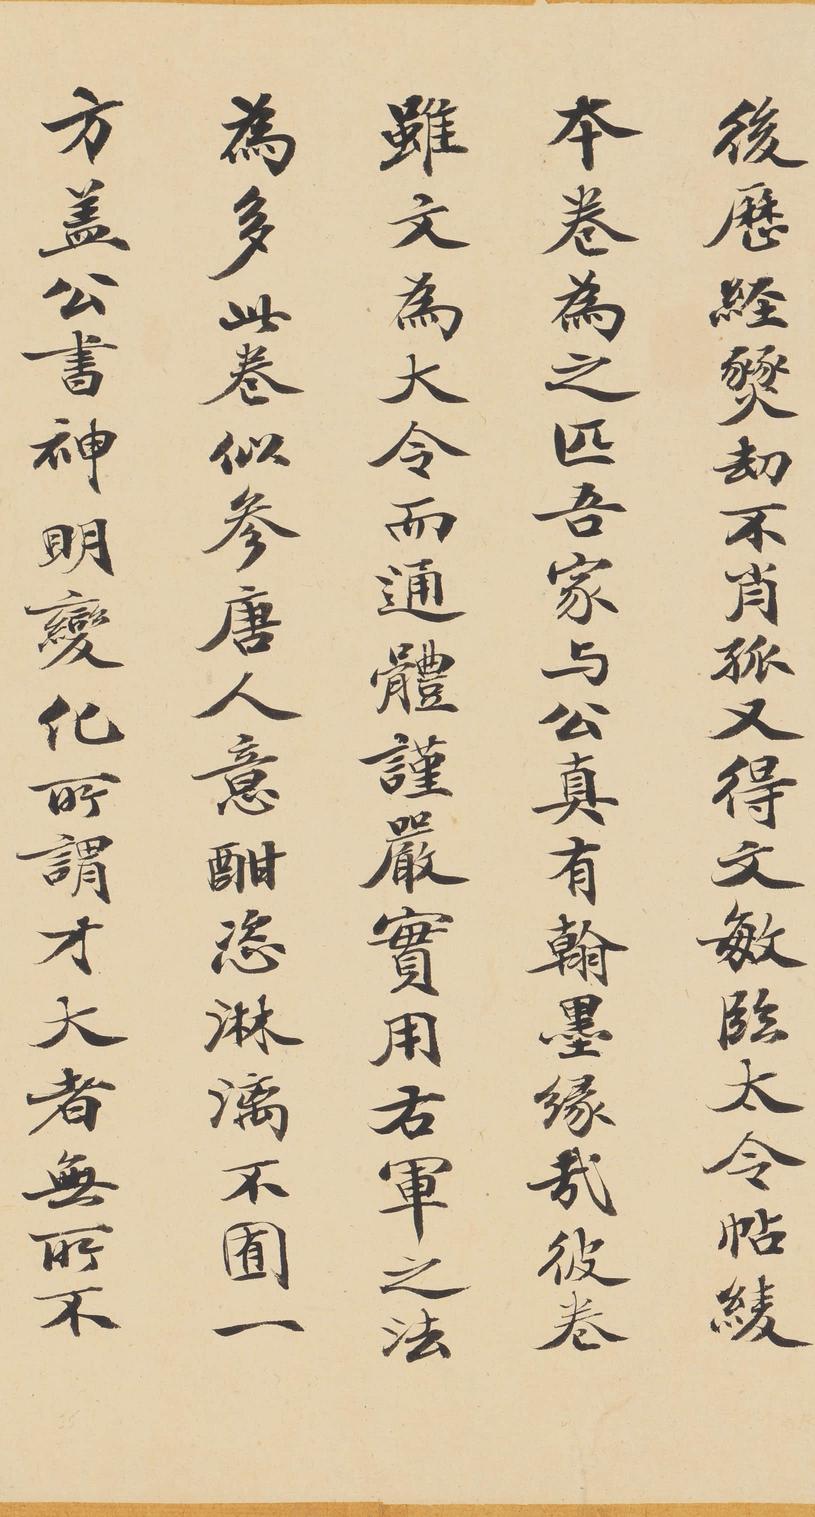 後歷経燹劫不肖孤又得文敏臨太令帖綾
本卷為之匹吾家与公真有翰墨緣哉彼卷
雖文為大令而通體謹嚴實用右軍之法
為多此卷似參唐人意酣恣淋漓不囿一
方盖公書神明變化所謂才大者無所不